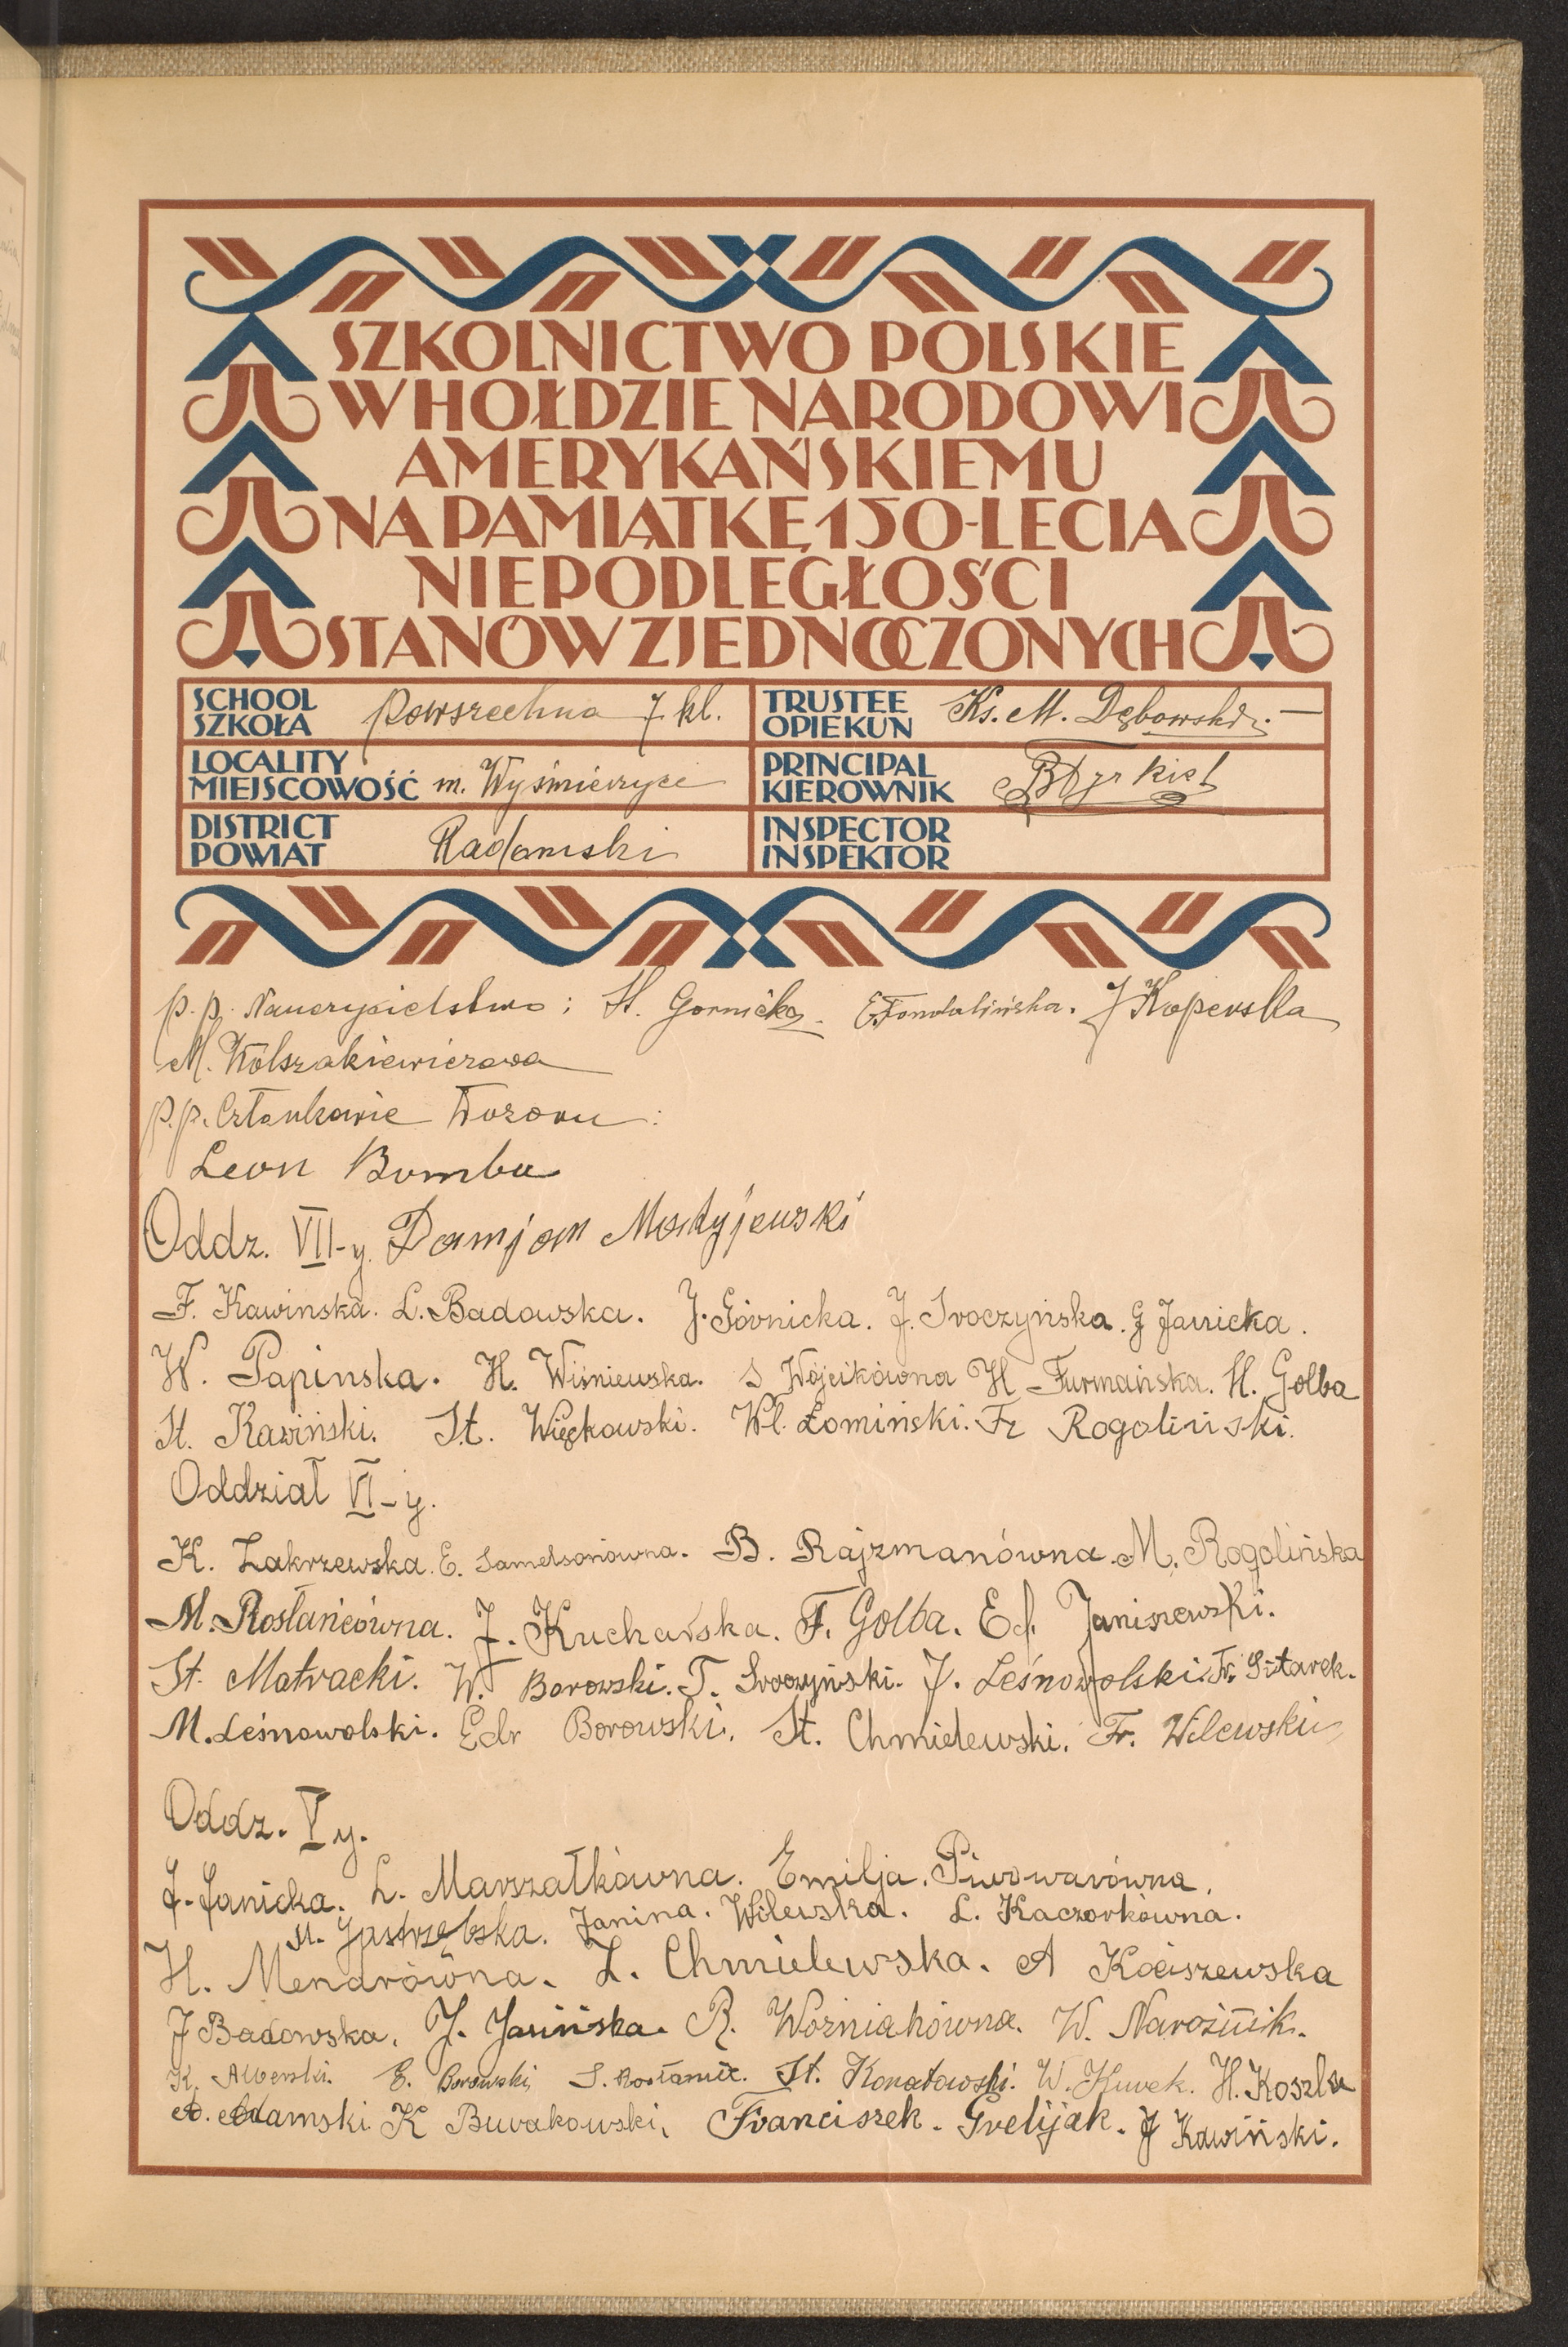 SZKOLNICTWO POLSKIE
W HOŁDZIE NARODOWI
AMERYKAŃSKIEMU
NA PAMIĄTKĘ 150-LECIA
NIEPODLEGŁOŚCI
STANÓW ZJEDNOCZONYCH
SCHOOL
SZKOŁA powszechna 7 kl.
TRUSTEE
OPIEKUN Ks. M. Dębowski. —
LOCALITY
MIEJSCOWOŚĆ m. Wyśmierzyce
PRINCIPAL
KIEROWNIK
DISTRICT
POWIAT Radomski
INSPECTOR
INSPEKTOR
p. p. Nauczycielstwo: St. Gornicka. J Koperska
M. Kolszakiewiczowa
p. p. Członkowie Dozoru:
Leon Bomba
Oddz. VII-y. Damjan Matyjewski
F. Kawinska. L. Badowska. J. Górnicka. J. Sroczyńska. J Janicka.
W. Papinska. H. Wiśniewska. S Wójcikówna H Furmańska. H. Golba
St. Kawiński. St. Więckowski. Wł. Łomiński. Fr Rogoliński.
Oddział VI-y.
K. Zakrzewska. E. Samelsonówna. B. Rajzmanówna. M. Rogolińska
M. Rosłańcówna. J. Kucharska. F. Golba. Ed. Janiszewski.
St. Matracki. W. Borowski. T. Sroczyński. J. Leśnowolski. Fr. Sitarek.
M. Leśnowolski. Edr Borowski. St. Chmielewski. Fr. Wilewski
Oddz. V y.
J. Janicka. L. Marszałkówna. Emilja. Piwowarówna.
M. Jastrzębska. Janina. Wilewska. L. Kaczorkówna.
H. Mendrówna. Z. Chmielewska. A Kociszewska
J Badowska. J. Jasińska. R. Woźniakówna. W. Narożnik.
K. Alberski. E. Borowski, S. Rosłaniec. St. Konatowski. W. Kurek. H. Koszla
A. Adamski K Burakowski, Franciszek. Grelijak. J Kawiński.